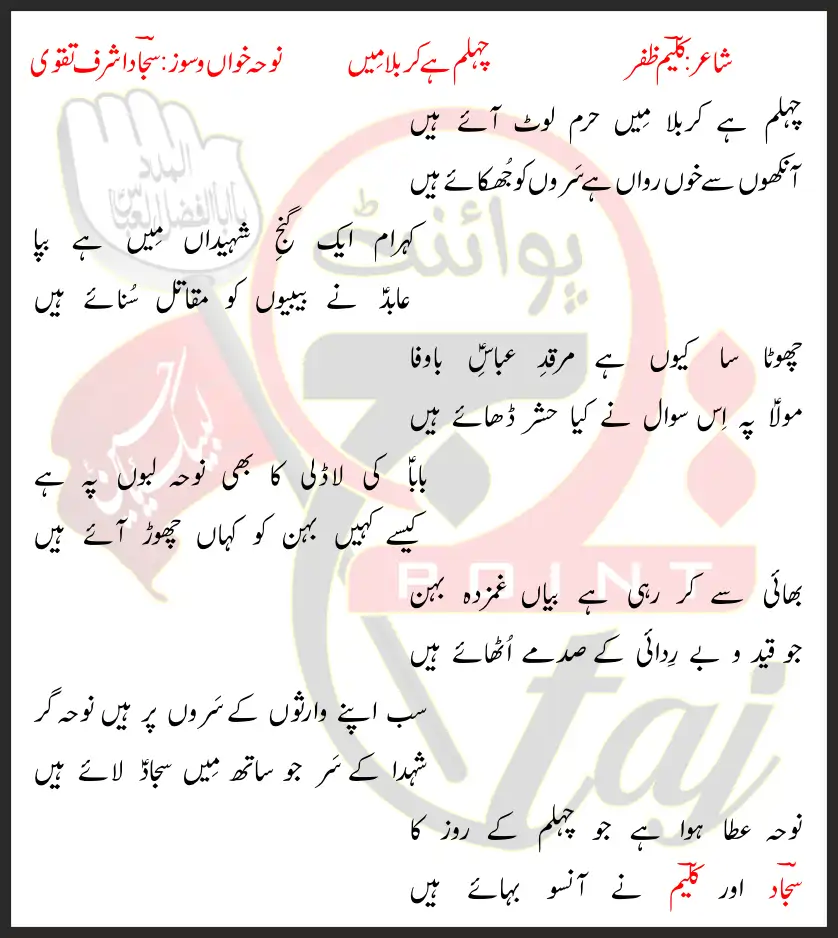 شاعر: کلیمؔ ظفر چہلم ہے کربلا مِیں نوحہ خواں و سوز: سجّادؔ اشرف تقوی
چہلم ہے کربلا مِیں حرم لوٹ آئے ہیں
آنکھوں سے خوں رواں ہے سَروں کو جُھکائے ہیں
کہرام ایک گنجِ شہیداں مِیں ہے بپا
عابدؑ نے بیبیوں کو مقاتل سُنائے ہیں
چھوٹا سا کیوں ہے مرقدِ عباسِؑ باوفا
مولاؑ پہ اِس سوال نے کیا حشر ڈھائے ہیں
باباؑ کی لاڈلی کا بھی نوحہ لبوں پہ ہے
کیسے کہیں بہن کو کہاں چھوڑ آئے ہیں
بھائی سے کر رہی ہے بیاں غمزدہ بہن
جو قید و بے رِدائی کے صدمے اُٹھائے ہیں
سب اپنے وارثوں کے سَروں پر ہیں نوحہ گر
شہدا کے سَر جو ساتھ مِیں سجادؑ لائے ہیں
نوحہ عطا ہوا ہے جو چہلم کے روز کا
سجّادؔ اور کلیمؔ نے آنسو بہائے ہیں
المدد
یا اباالفضل العباسؑ
لبیک یا حسینؑ
پوائنٹ
تاج
POINT
taj